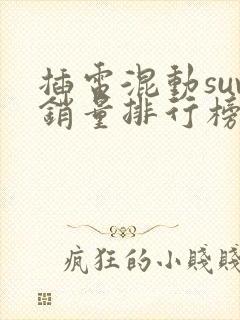 插電混動suv
銷量排行榜
瘋狂的小賤賤